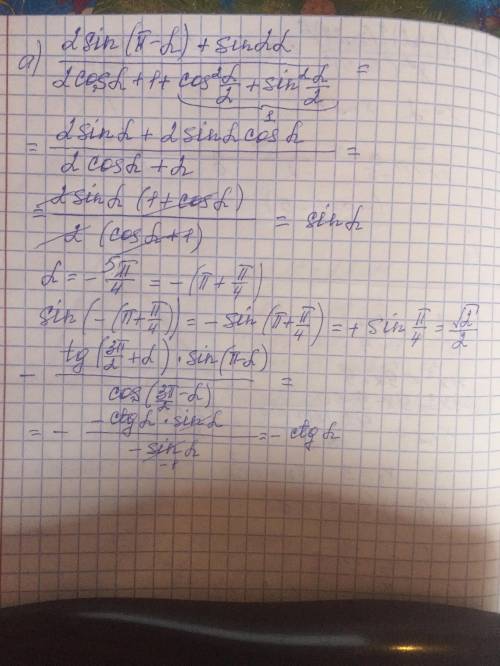 а) (2sin(π-α) + sin2α) / (2cosα + 1 + cos²α/2 + sin²α/2) =
1
= (2sinα + 2sinα cosα) / (2cosα + 2) =
= (2sinα (1+cosα)) / (2 (cosα+1)) = sinα
α = -5π/4 = -(π + π/4)
sin(-(π+π/4)) = -sin(π+π/4) = + sin π/4 = √2/2
- (tg(3π/2 + α) · sin(π-α)) / (cos(3π/2 - α)) =
= - (-ctgα · sinα) / (-sinα) = - ctgα
-1